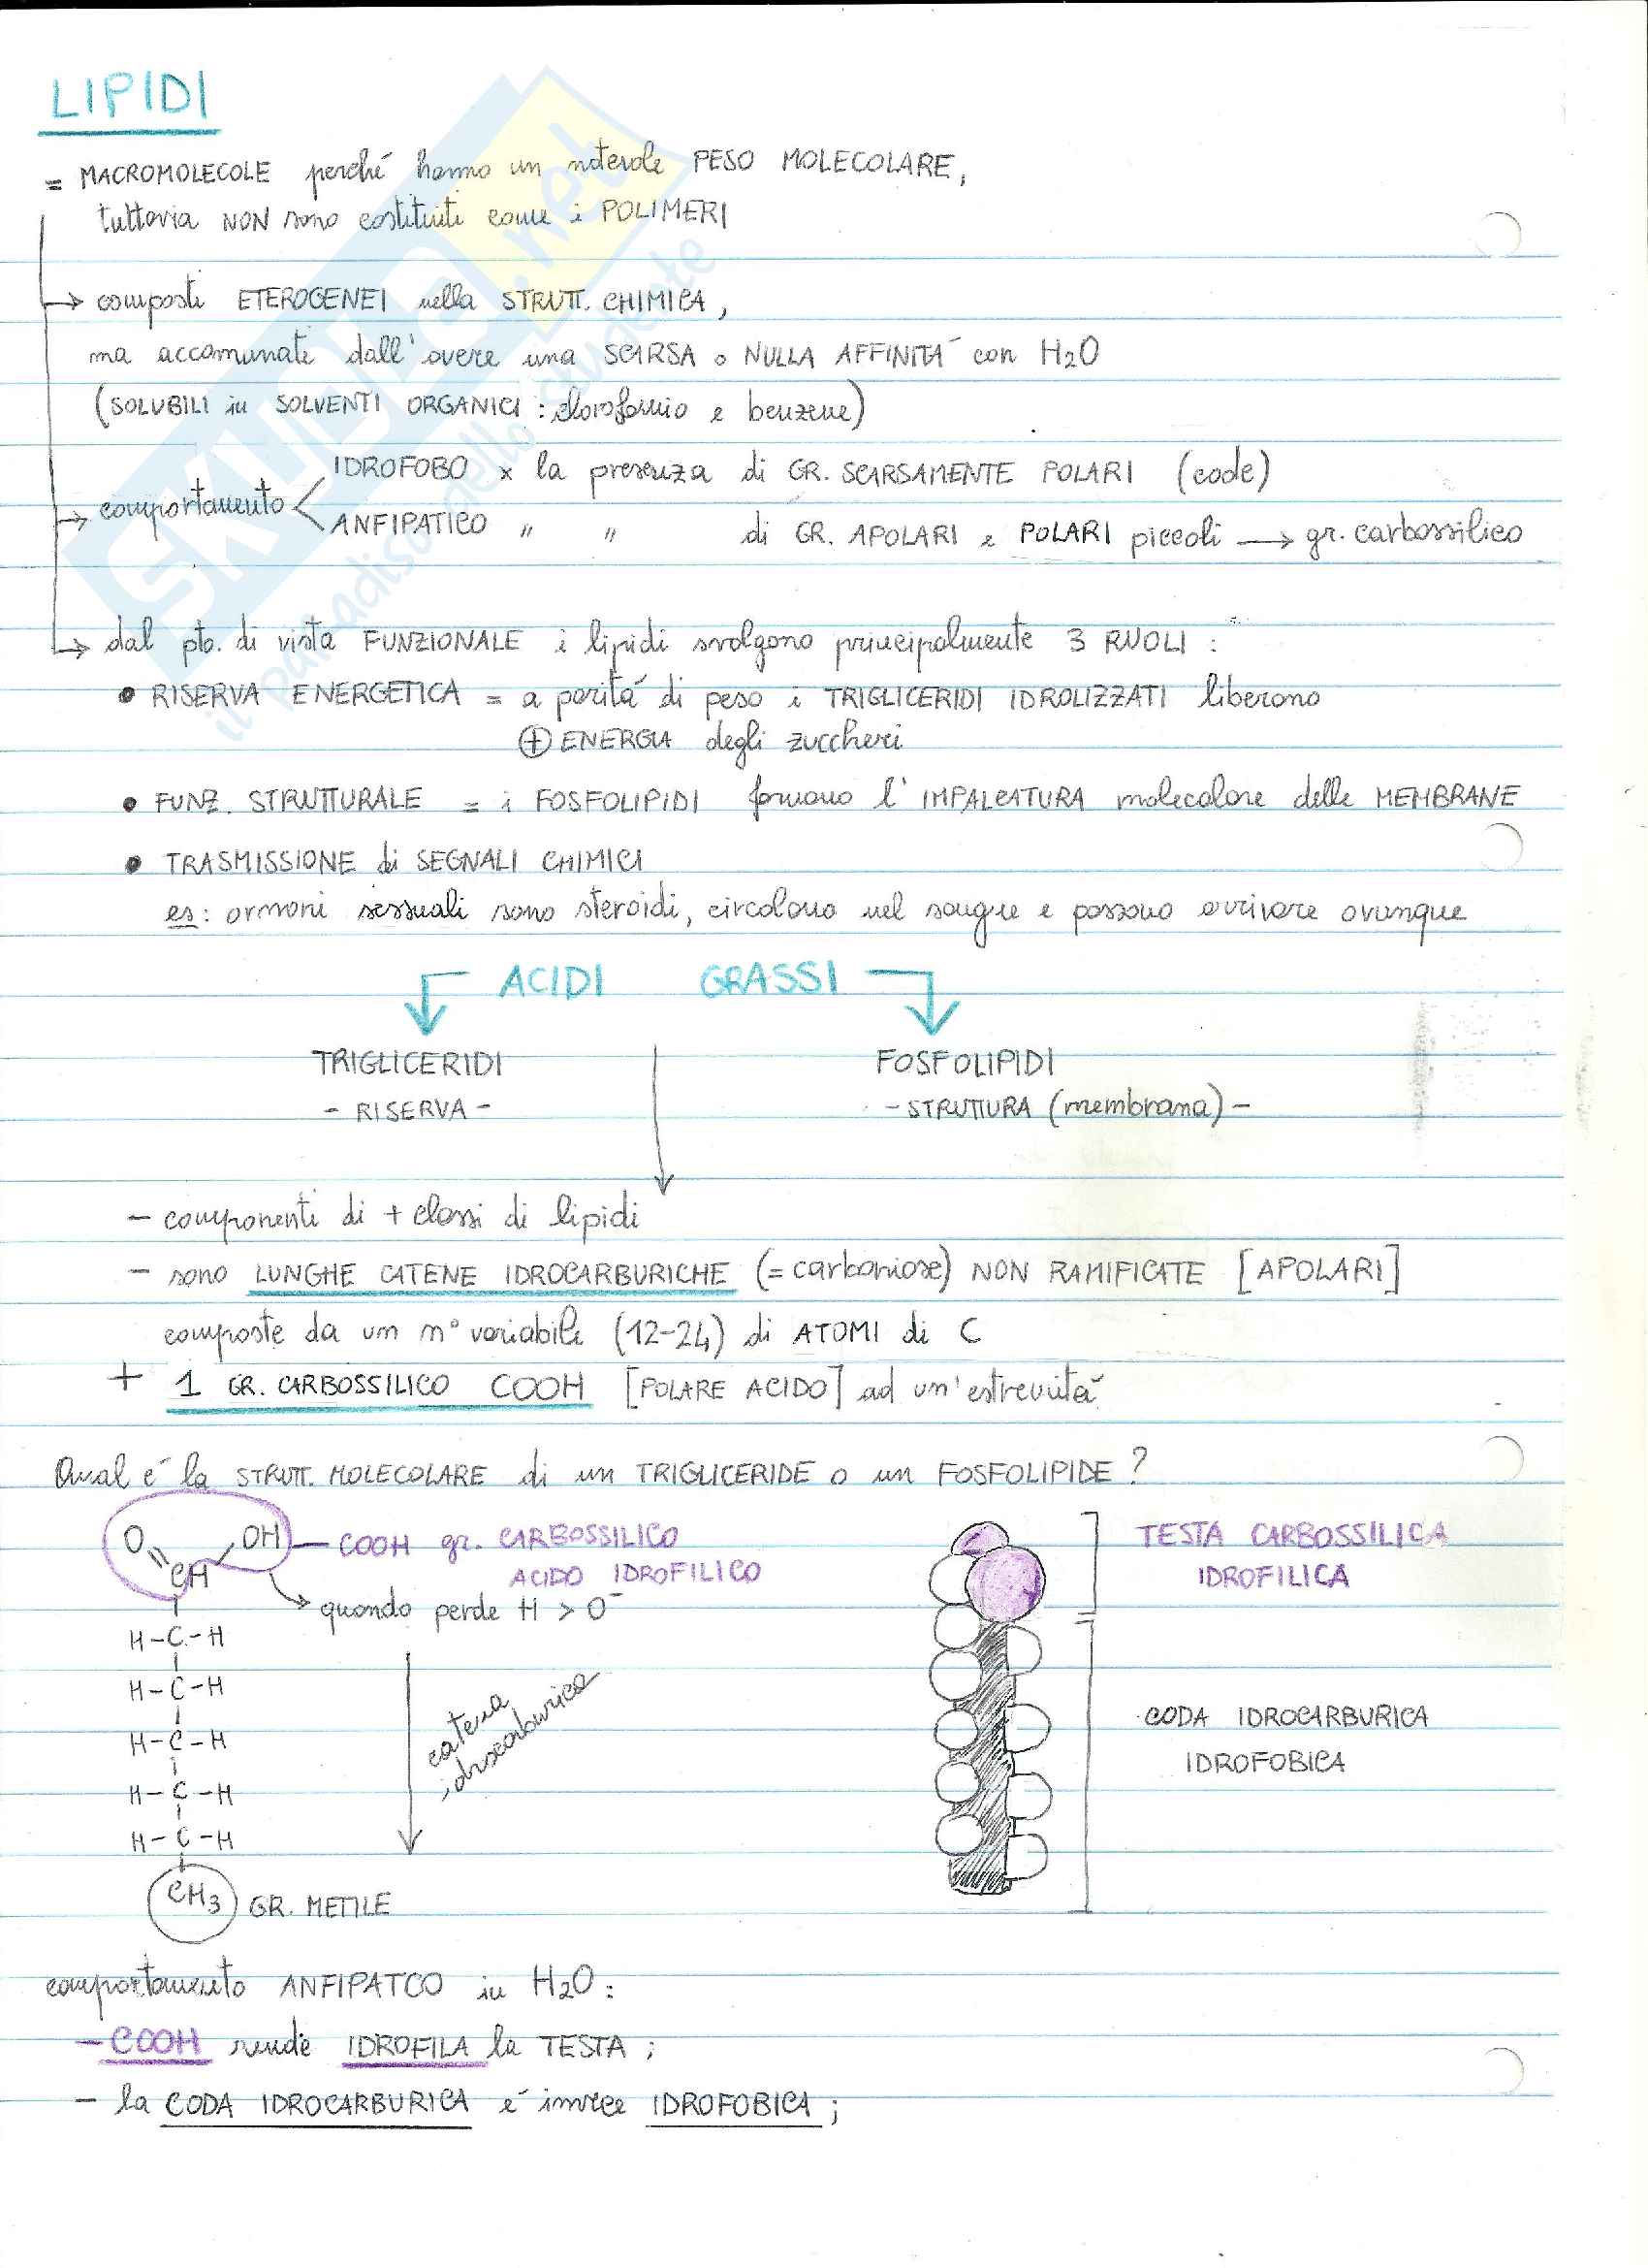 LIPIDI
= MACROMOLECOLE perché hanno un notevole PESO MOLECOLARE,
tuttavia NON sono costituiti come i POLIMERI
→ composti ETEROGENEI nella STRUTT. CHIMICA,
ma accomunate dall'avere una SCARSA o NULLA AFFINITÁ con H2O
(SOLUBILI in SOLVENTI ORGANICI : cloroformio e benzene)
→ comportamento < IDROFOBO x la presenza di GR. SCARSAMENTE POLARI (code)
ANFIPATICO " " di GR. APOLARI e POLARI piccoli → gr. carbossilico
→ dal pto. di vista FUNZIONALE i lipidi svolgono principalmente 3 RUOLI :
• RISERVA ENERGETICA = a paritá di peso i TRIGLICERIDI IDROLIZZATI liberano
⊕ ENERGIA degli zuccheri
• FUNZ. STRUTTURALE = i FOSFOLIPIDI formano l'IMPALCATURA molecolare delle MEMBRANE
• TRASMISSIONE di SEGNALI CHIMICI
es: ormoni sessuali sono steroidi, circolano nel sangue e possono arrivare ovunque
ACIDI GRASSI
TRIGLICERIDI FOSFOLIPIDI
- RISERVA - - STRUTTURA (membrana) -
- componenti di + classi di lipidi
- sono LUNGHE CATENE IDROCARBURICHE (= carboniose) NON RAMIFICATE [APOLARI]
composte da un n° variabile (12-24) di ATOMI di C
+ 1 GR. CARBOSSILICO COOH [POLARE ACIDO] ad un'estremitá
Qual é la STRUTT. MOLECOLARE di un TRIGLICERIDE o un FOSFOLIPIDE ?
O OH — COOH gr. CARBOSSILICO
CH ACIDO IDROFILICO
→ quando perde H > O⁻
H-C-H
H-C-H
H-C-H
H-C-H
H-C-H
CH3 GR. METILE
catena
idrocarburica
TESTA CARBOSSILICA
IDROFILICA
CODA IDROCARBURICA
IDROFOBICA
comportamento ANFIPATCO in H2O :
- COOH rende IDROFILA la TESTA ;
- la CODA IDROCARBURICA é invece IDROFOBICA ;
SKUOLA.net
il paradiso dello studente